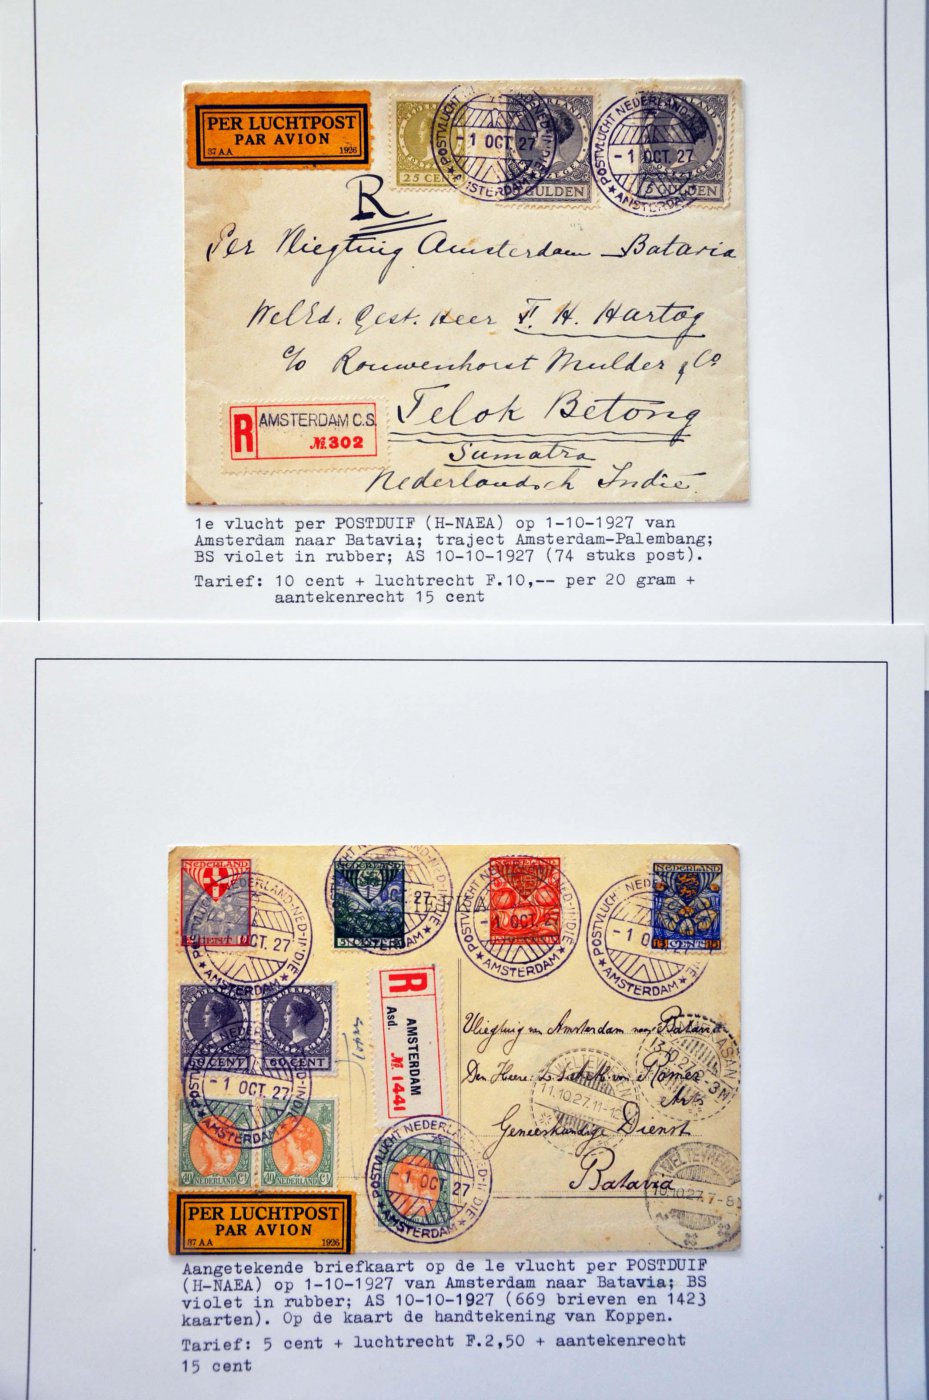 PER LUCHTPOST
PAR AVION
37 AA 1926
25 CENT
GULDEN
5 GULDEN
POSTVLUCHT NEDERLAND-NED-INDIE
-1 OCT 27
AMSTERDAM
POSTVLUCHT NEDERLAND-NED
-1 OCT. 27
AMSTERDAM
R
Per Vliegtuig Amsterdam - Batavia
WelEd. Gest. Heer F. H. Hartog
c/o Rouwenhorst Mulder & Co
Telok Betong
Sumatra
Nederlandsch Indië.
R AMSTERDAM C.S.
№ 302
1e vlucht per POSTDUIF (H-NAEA) op 1-10-1927 van
Amsterdam naar Batavia; traject Amsterdam-Palembang;
BS violet in rubber; AS 10-10-1927 (74 stuks post).
Tarief: 10 cent + luchtrecht F.10,-- per 20 gram +
aantekenrecht 15 cent
NEDERLAND
CENT
OCT. 27
NEDERLAND-NED-INDIE
AMSTERDAM
POSTVLUCHT
OCT 27
AMSTERDAM
POSTVLUCHT NEDERLAND
-1 OCT 27
AMSTERDAM
NEDERLAND
15 CENT 15
POSTVLUCHT NEDERLAND
-1 OCT 27
AMSTERDAM
60 CENT
60 CENT
POSTVLUCHT NEDERLAND-NED-INDIE
-1 OCT 27
AMSTERDAM
40 CT
NEDERLAND
40 CT
NEDERLAND
R
AMSTERDAM
Asd. № 1441
Vliegtuig van Amsterdam naar Batavia
Den Heere
Römer
Arts
Geneeskundige Dienst
Batavia
11.10.27.11-1
WELTEVREDEN
10.27.7-8
POSTVLUCHT NEDERLAND-NED-INDIE
-1 OCT 27
AMSTERDAM
PER LUCHTPOST
PAR AVION
37 AA 1926
Aangetekende briefkaart op de 1e vlucht per POSTDUIF
(H-NAEA) op 1-10-1927 van Amsterdam naar Batavia; BS
violet in rubber; AS 10-10-1927 (669 brieven en 1423
kaarten). Op de kaart de handtekening van Koppen.
Tarief: 5 cent + luchtrecht F.2,50 + aantekenrecht
15 cent